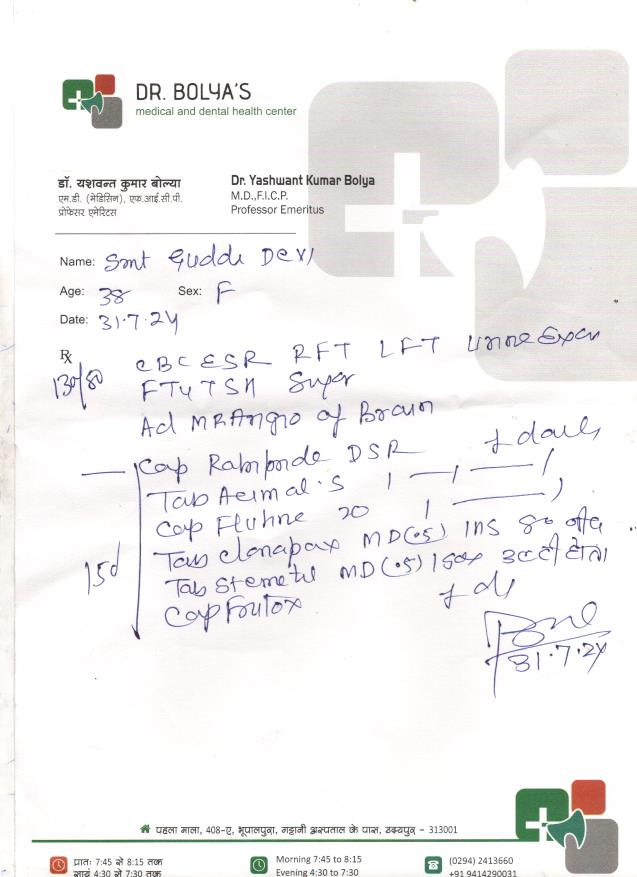 DR. BOLYA'S
medical and dental health center
डॉ. यशवन्त कुमार बोल्या
एम.डी. (मेडिसिन), एफ.आई.सी.पी.
प्रोफेसर एमेरिटस
Dr. Yashwant Kumar Bolya
M.D.,F.I.C.P.
Professor Emeritus
Name: Smt Guddi Devi
Age: 38 Sex: F
Date: 31.7.24
Rx
130/80
CBC ESR RFT LFT Urine Exam
FT4 TSH Sugar
Ad MR Angio of Brain
Cap DSR 1 daily
Tab 1 — 1 — 1
Cap 20 1
15d
Tab MD (.5)
Tab Stemetil MD (.5) उल्टी
Cap
31.7.24
पहला माला, 408-ए, भूपालपुरा, गट्टानी अस्पताल के पास, उदयपुर - 313001
प्रातः 7:45 से 8:15 तक
सायं 4:30 से 7:30 तक
Morning 7:45 to 8:15
Evening 4:30 to 7:30
(0294) 2413660
+91 9414290031